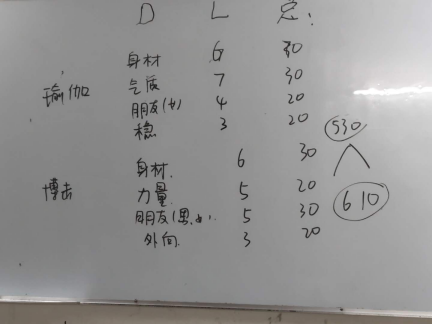 D L 总:
身材 6 30
瑜伽 气质 7 30
朋友(女) 4 20
稳 3 20 530
身材. 6 30
博击 力量 5 20 610
朋友(男.女). 5 30
外向. 3 20